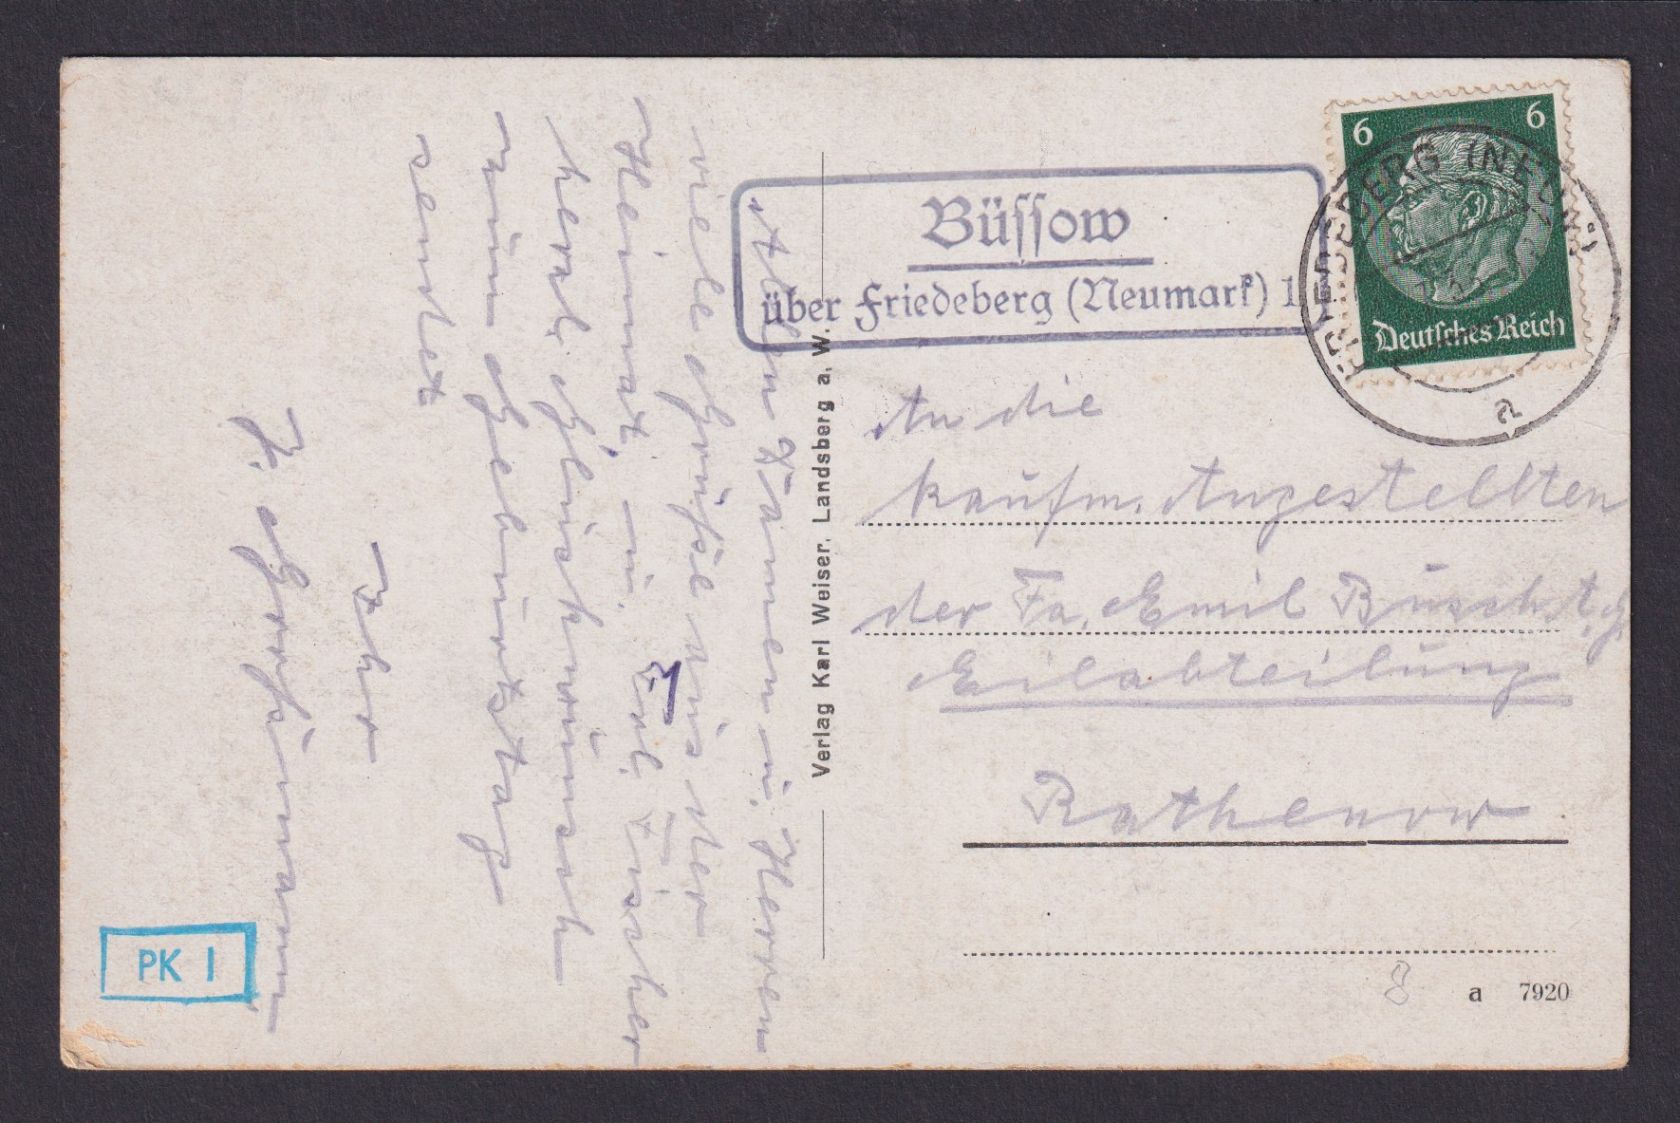 Büssow
über Friedeberg (Neumark) 1
6 6
Deutsches Reich
FRIEDEBERG (NEUM)
a
An die
kaufm. Angestellten
der Fa. Emil Busch A.G.
Eilabteilung
Rathenow
Allen Damen u. Herren
viele Grüße aus der
Heimat, u. Frl. Fischer
herzl. Glückwünsch
zum Geburtstag
sendet
Ihr
Verlag Karl Weiser, Landsberg a. W.
PK I
8
a 7920